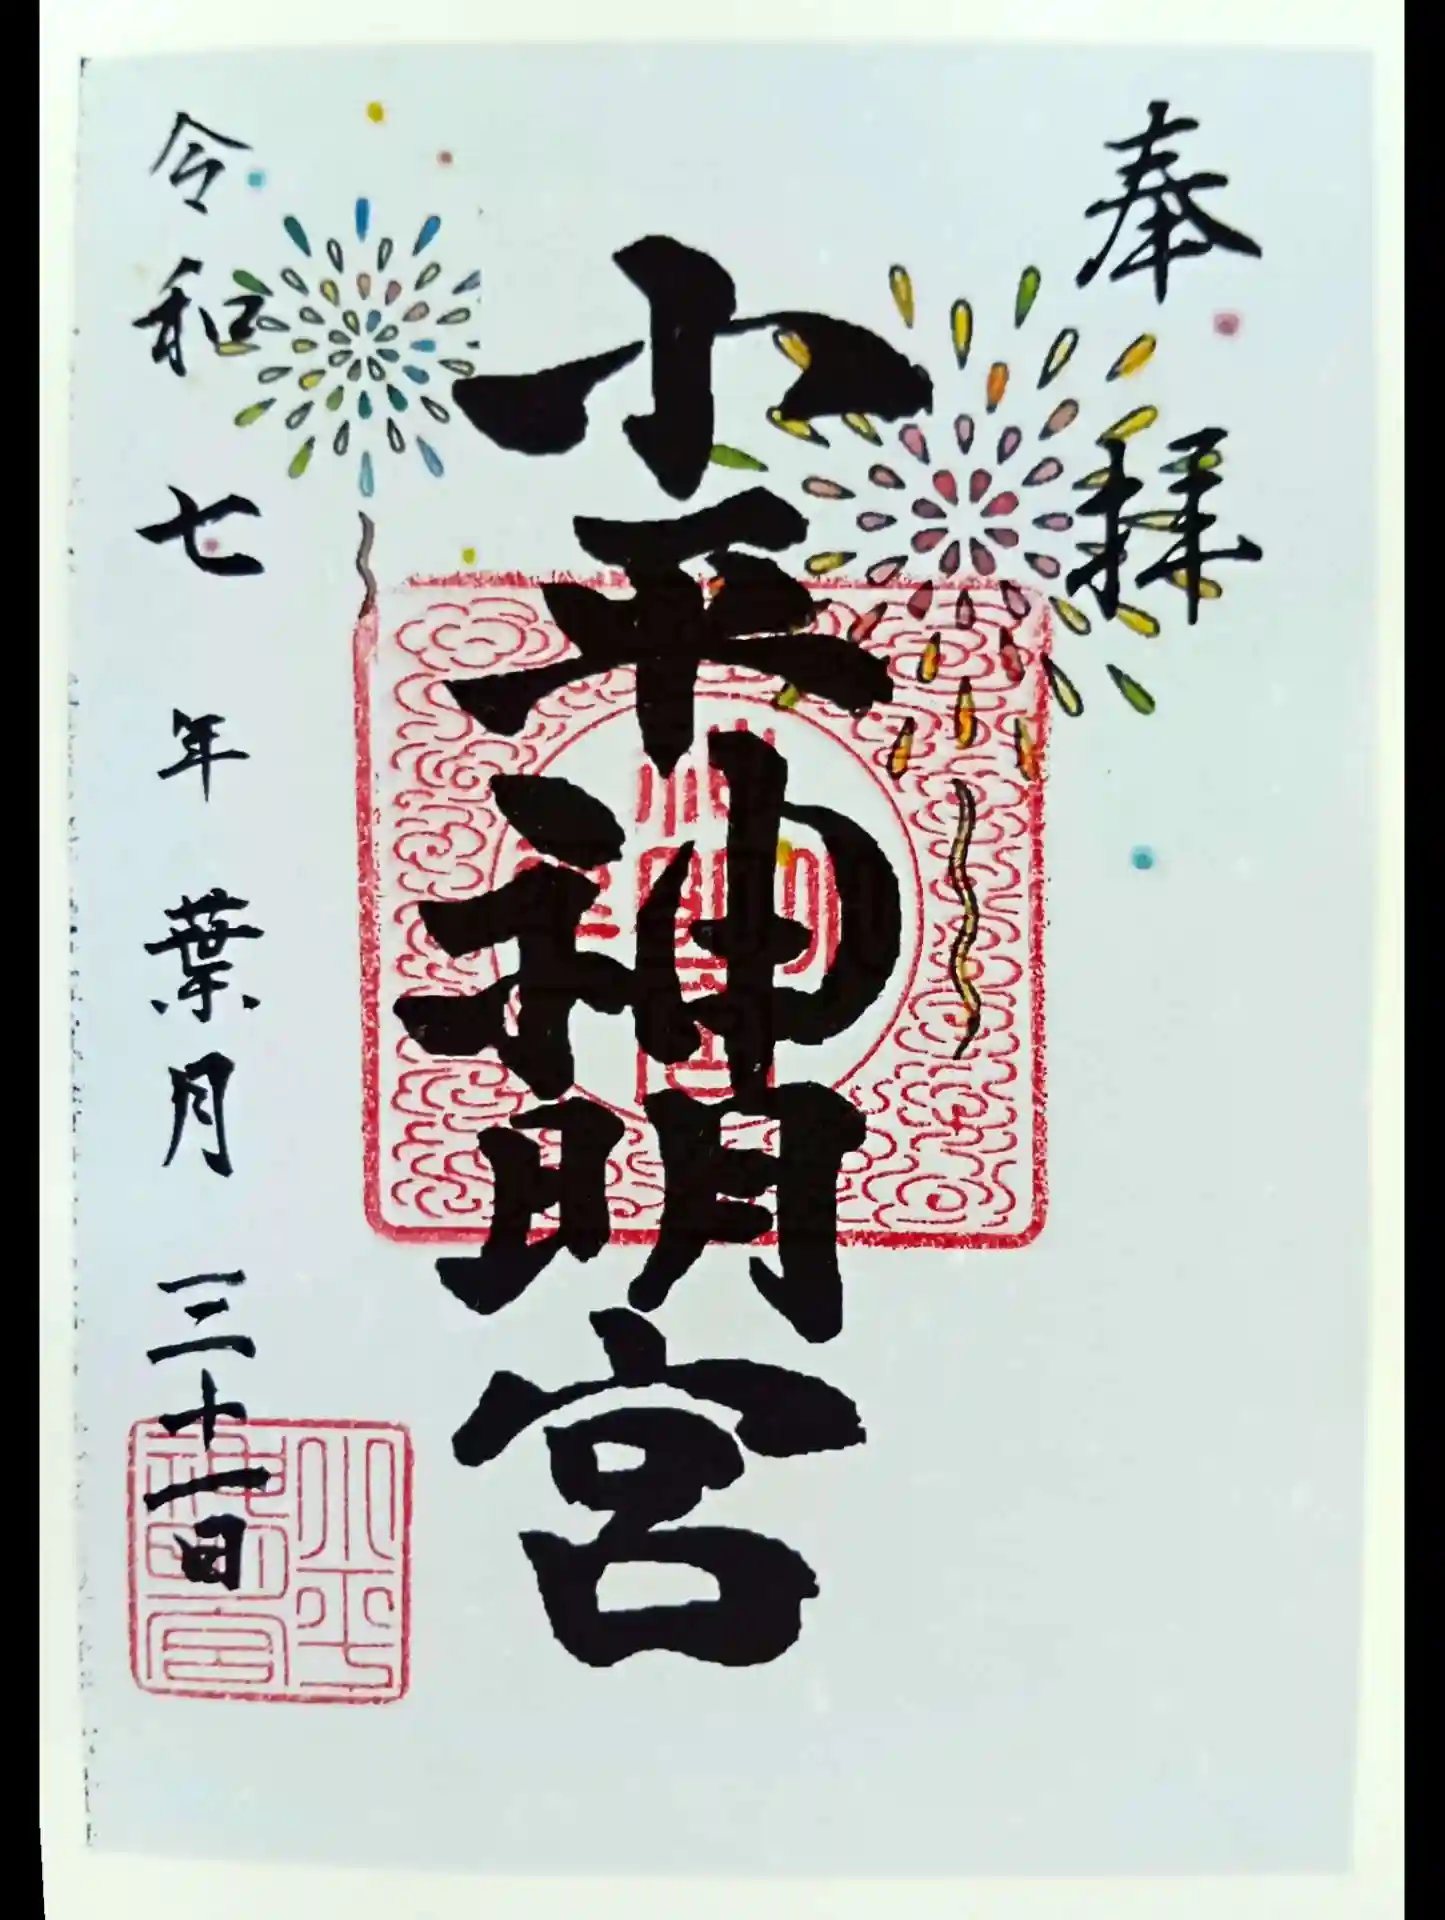 奉拝
小平神明宮
令和七年葉月三十一日
小平神明宮